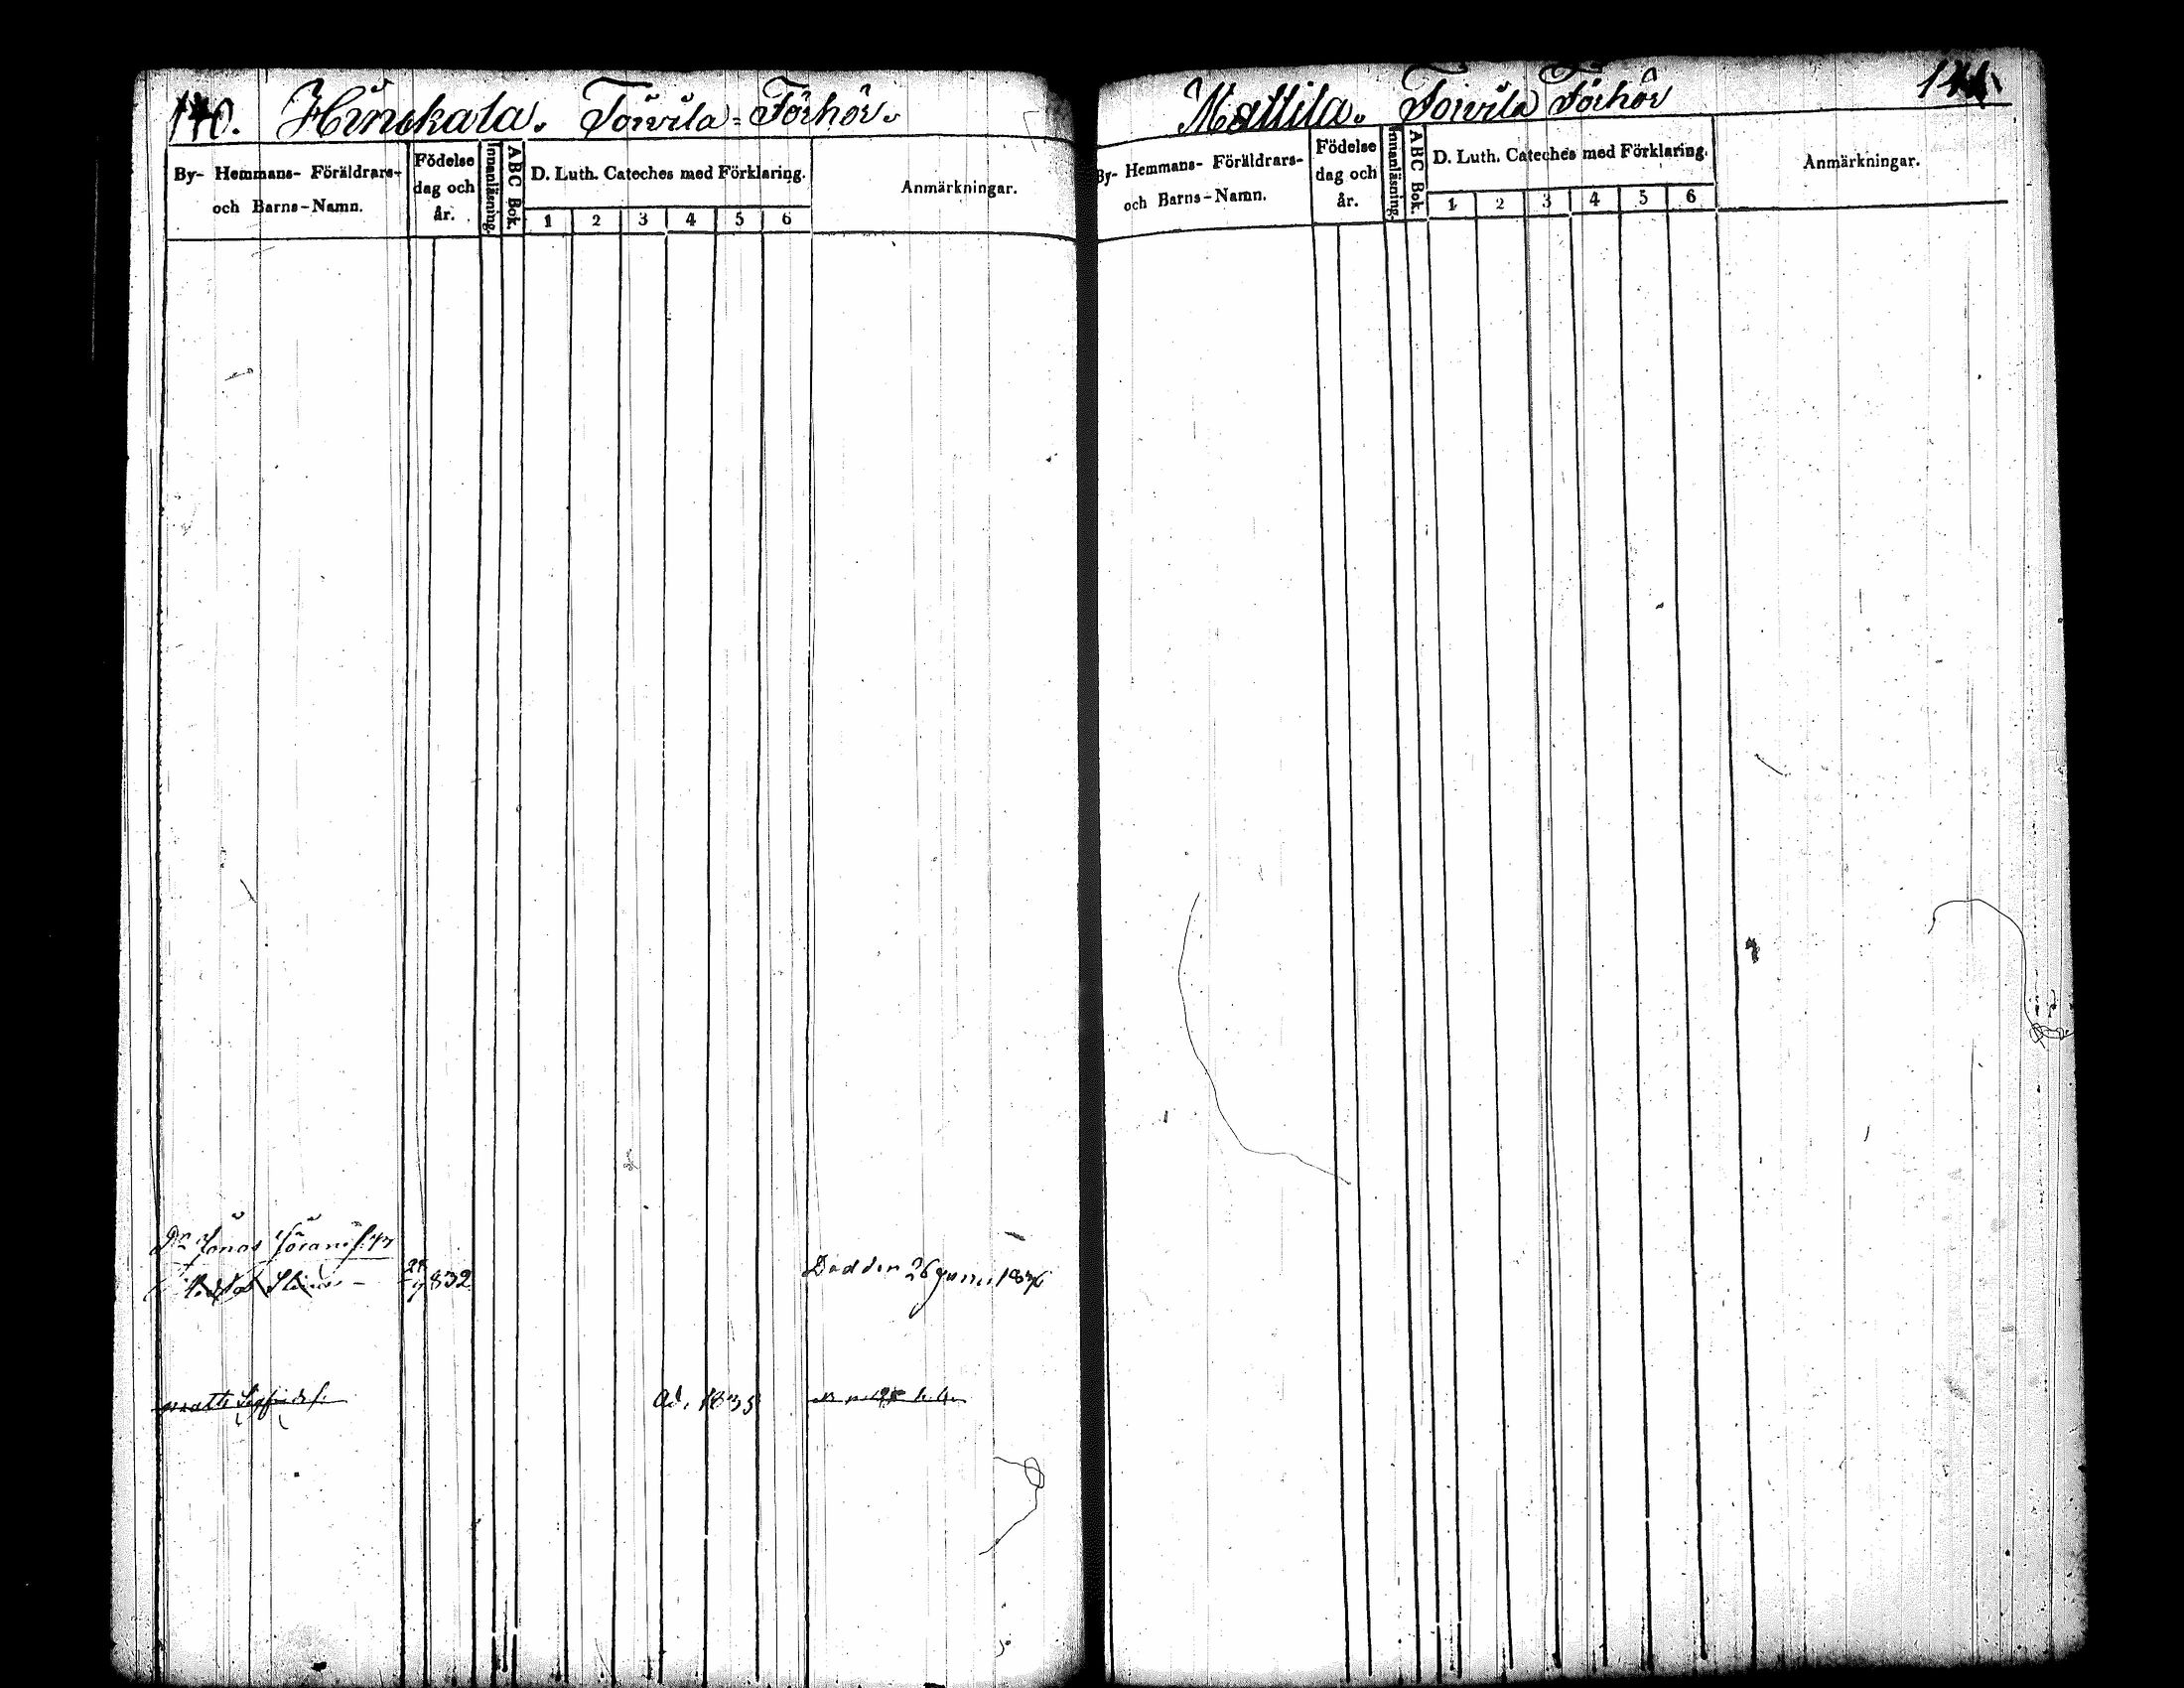 140. Hinckala. Toivila = Förhör.
By- Hemmans- Föräldrars- och Barns-Namn.
Födelse dag och år.
Innanläsning.
ABC Bok.
D. Luth. Cateches med Förklaring.
1 2 3 4 5 6
Anmärkningar.
Jonas
832 Död den 26 Junii 1836
Matts Sigfridss. Ad. 1835
Mattila. Toivila Förhör 141.
By- Hemmans- Föräldrars- och Barns-Namn.
Födelse dag och år.
Innanläsning.
ABC Bok.
D. Luth. Cateches med Förklaring.
1 2 3 4 5 6
Anmärkningar.